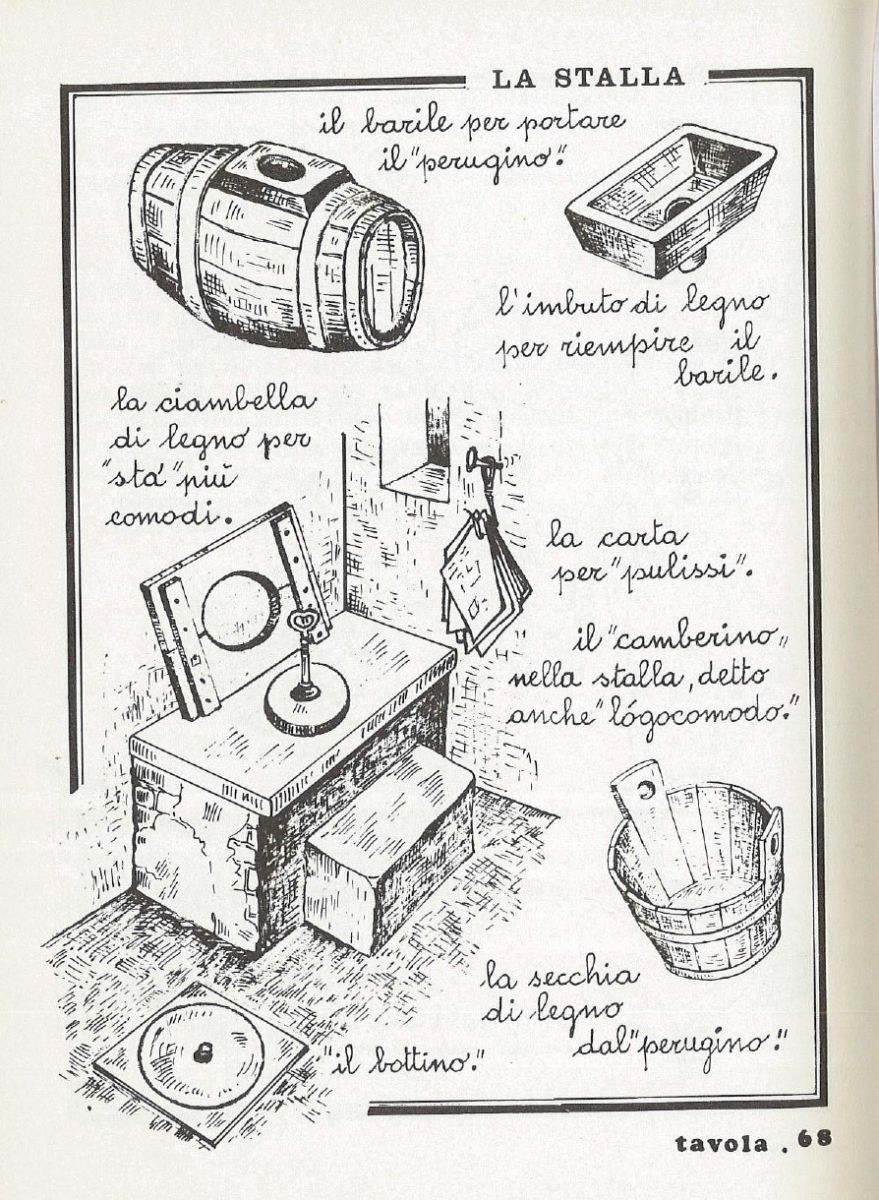 LA STALLA
il barile per portare
il "perugino".
l'imbuto di legno
per riempire il
barile.
la ciambella
di legno per
"sta'" più
comodi.
la carta
per "pulissi".
il "camberino"
nella stalla, detto
anche "lógocomodo".
la secchia
di legno
dal "perugino".
"il bottino".
tavola . 68